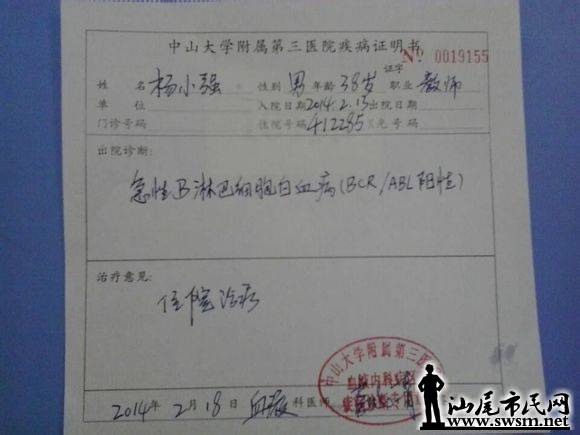 中山大学附属第三医院疾病证明书
证字 № 0019155
姓 名 杨小强 性别 男 年龄 38岁 职业 教师
单 位 入院日期 2014.2.13 出院日期
门诊号码 住院号码 412285 X光号码
出院诊断:
急性B淋巴细胞白血病(BCR/ABL阳性)
治疗意见:
住院治疗
中山大学附属第三医
血液内科
2014年 2月 18日 血液 科医师
汕尾市民网
www.swsm.net